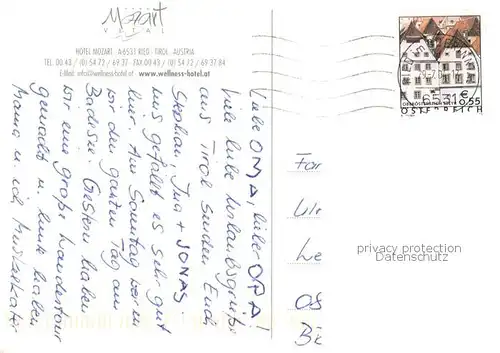 Mozart
VITAL
HOTEL MOZART A-6531 RIED TIROL AUSTRIA
TEL. 00 43 / (0) 54 72 / 69 37 FAX 00 43 / (0) 54 72 / 69 37 84
E-Mail: info@wellness-hotel.at www.wellness-hotel.at
Liebe OMA, lieber OPA!
Viele liebe Urlaubsgrüße
aus Tirol senden Euch
Stephan, Ina + JONAS
uns gefällt es sehr gut
hier. Am Sonntag waren
wir den ganzen Tag am
Badesee. Gestern haben
wir eine große Wandertour
gemacht u. heute haben
Mama u. ich Muskelkater
6531
€ 0,55
ÖSTERREICH
Fam
Ulr
Le
privacy protection
Datenschutz